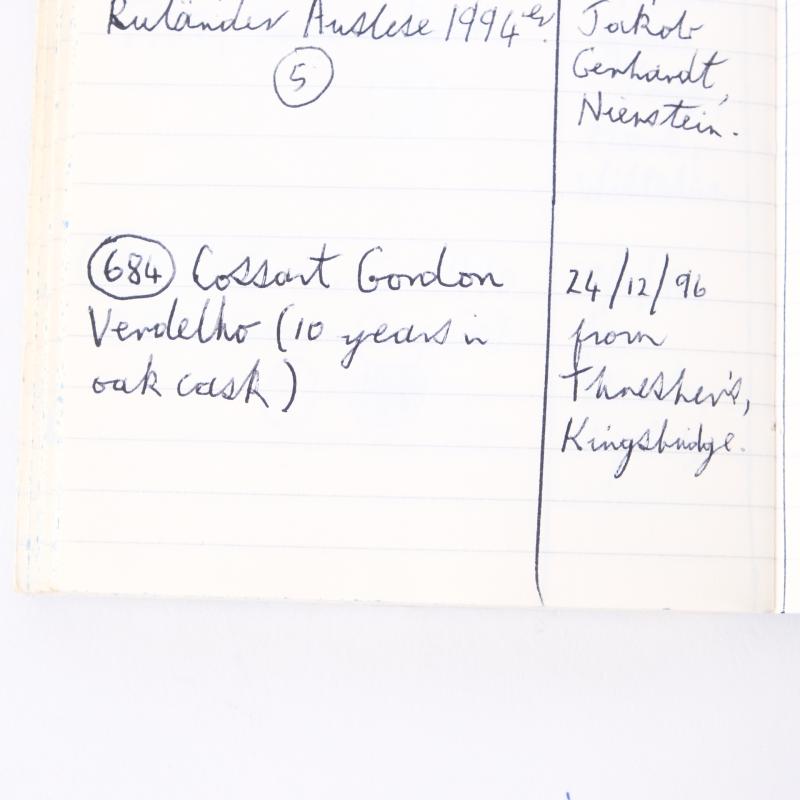 Ruländer Auslese 1994er.
5
Jakob
Gerhardt,
Nierstein.
684 Cossart Gordon
Verdelho (10 years in
oak cask)
24/12/96
from
Thresher's,
Kingsbridge.